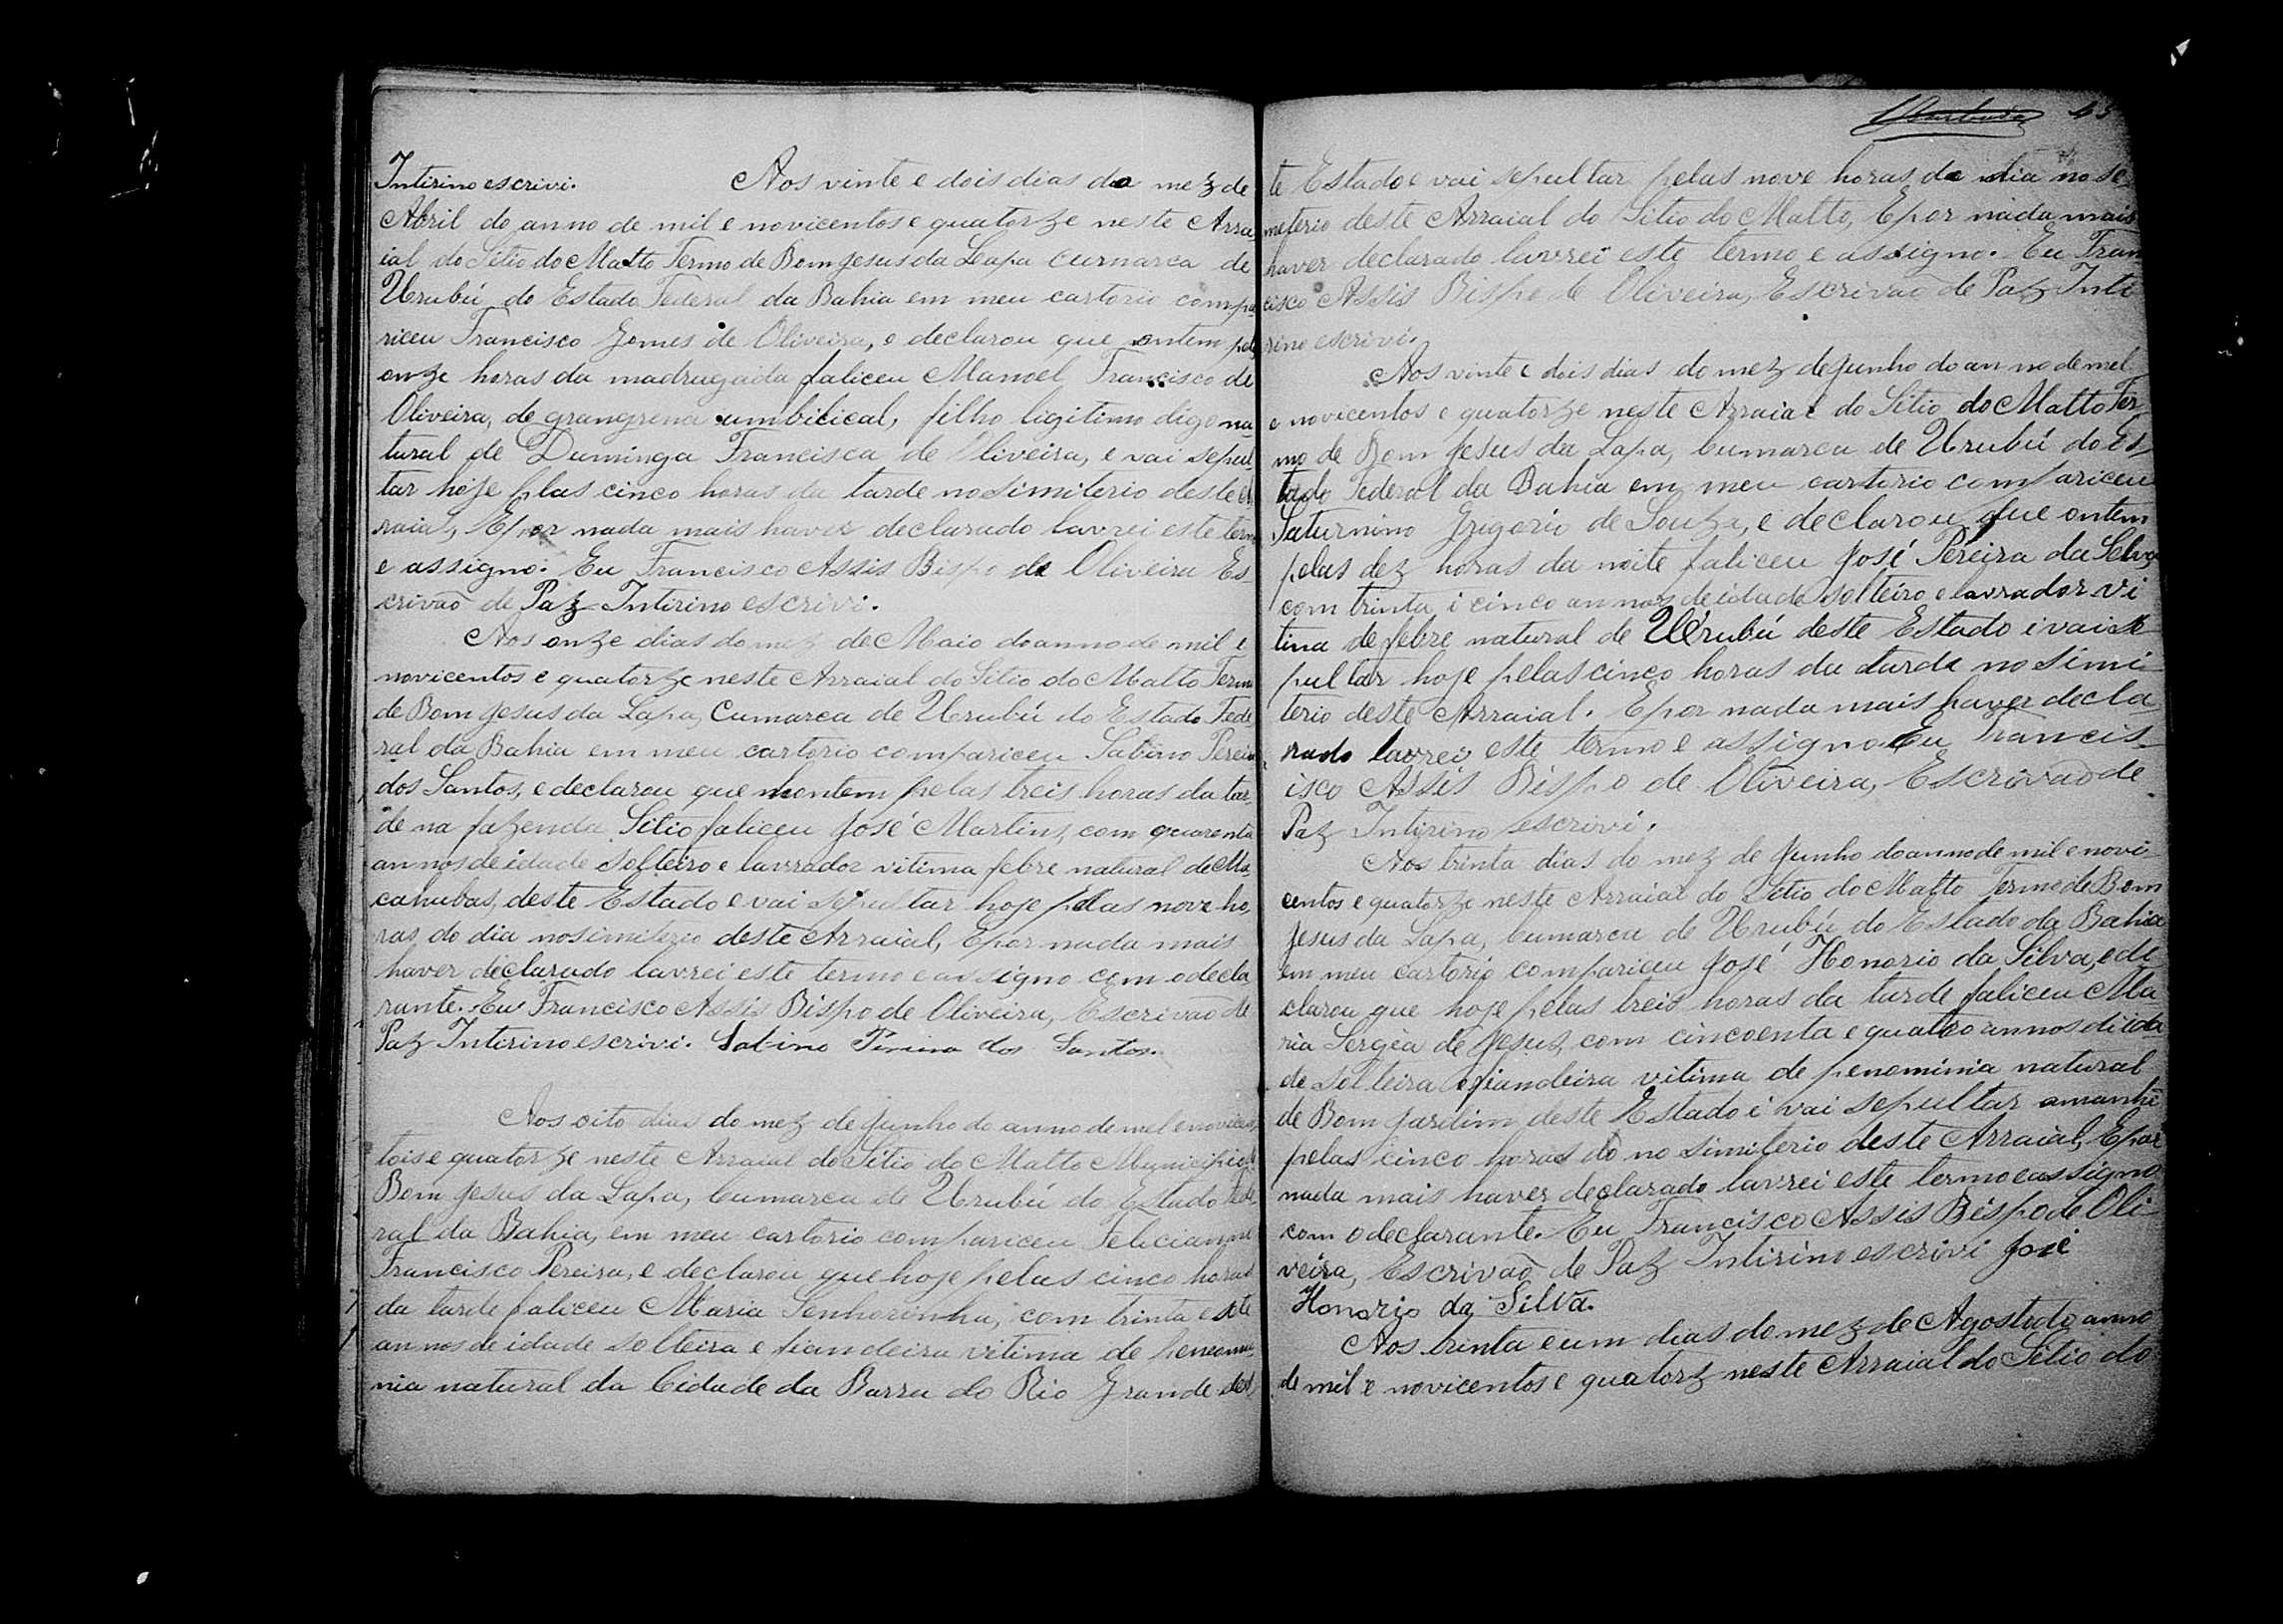 Intirino escrivi. Aos vinte e dois dias do mez de
Abril do anno de mil e novicentos e quatorze neste Arra
ial do Sitio do Matto Termo de Bom Jesus da Lapa Cumarca de
Urubú do Estado Federal da Bahia em meu cartorio compa
riceu Francisco Gomes de Oliveira, e declarou que ontem pelas
onze horas da madrugada faliceu Manoel Francisco de
Oliveira, de grangrena umbilical, filho ligitimo digo na
tural de Duminga Francisca de Oliveira, e vai sepul
tar hoje plas cinco horas da tarde no simiterio deste Ar
raial, E por nada mais haver declarado lavrei este term
e assigno. Eu Francisco Assis Bispo de Oliveira Es
crivão de Paz Intirino escrivi.
Aos onze dias do mez de Maio do anno de mil e
novicentos e quatorze neste Arraial do Sitio do Matto Termo
de Bom Jesus da Lapa, Cumarca de Urubú do Estado Fede
ral da Bahia em meu cartorio compariceu Sabino Pereira
dos Santos, e declarou que hontem pelas treis horas da tar
de na fazenda Sitio faliceu José Martins, com quarenta
annos de idade solteiro e lavrador vitima febre natural de Ma
cahubas, deste Estado e vai sepultar hoje pelas nove ho
ras do dia no simiterio deste Arraial, E por nada mais
haver declarado lavrei este termo e assigno com o decla
rante. Eu Francisco Assis Bispo de Oliveira, Escrivão de
Paz Intirino escrivi. Sabino Pereira dos Santos.
Aos oito dias do mez de Junho do anno de mel e novicen
tois e quatorze neste Arraial do Sitio do Matto Municipio
Bom Jesus da Lapa, Cumarca de Urubú do Estado Fede
ral da Bahia, em meu cartorio compariceu Felicianno
Francisco Pereira, e declarou que hoje pelas cinco horas
da tarde faliceu Maria Senhorinha, com trinta e sete
annos de idade solteira e fiandeira vitima de penomu
nia natural da Cidade da Barra do Rio Grande des
45
te Estado e vai sepultar pelas nove horas do dia no se
meterio deste Arraial do Sitio do Matto, E por nada mais
haver declarado lavrei este termo e assigno. Eu Fran
cisco Assis Bispo de Oliveira, Escrivão de Paz Inti
rino escrivi.
Aos vinte e dois dias do mez de Junho do anno de mel
e novicentos e quatorze neste Arraial do Sitio do Matto Ter
mo de Bom Jesus da Lapa, Cumarca de Urubú do Es
tado Federal da Bahia em meu cartorio compariceu
Saturnino Grigorio de Souza, e declarou que ontem
pelas dez horas da noite faliceu José Pereira da Selva
com trinta i cinco annos de idade solteiro e lavrador vi
tina de febre natural de Urubú deste Estado i vai se
pultar hoje pelas cinco horas da tarde no simi
terio deste Arraial. E por nada mais haver decla
rado lavrei este termo e assigno. Eu Francis
isco Assis Bispo de Oliveira, Escrivão de
Paz Intirino escrivi.
Aos trinta dias do mez de Junho do anno de mil e novi
centos e quatorze neste Arraial do Sitio do Matto Termo de Bom
Jesus da Lapa, Cumarca de Urubú do Estado da Bahia
em meu cartorio compariceu José Honorio da Silva, e de
clarou que hoje pelas treis horas da tarde faliceu Ma
ria Sergia de Jesus, com cincoenta e quatro annos di ida
de solteira e fiandeira vitima de penominia natural
de Bom Jardim deste Estado i vai sepultar amanhe
pelas cinco horas do no simiterio deste Arraial, E por
nada mais haver declarado lavrei este termo e assigno
com o declarante. Eu Francisco Assis Bispo de Oli
veira, Escrivão de Paz Intirino escrivi José
Honorio da Silva.
Aos trinta e um dias do mez de Agosto do anno
de mil e novicentos e quatorz neste Arraial do Sitio do